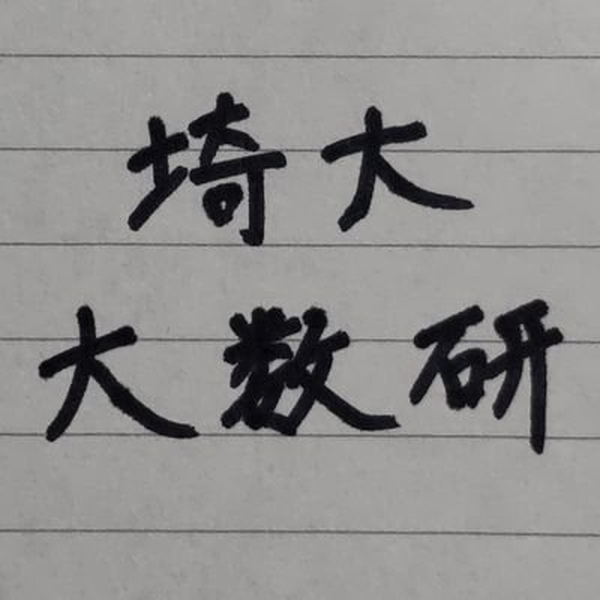 埼大
大数研